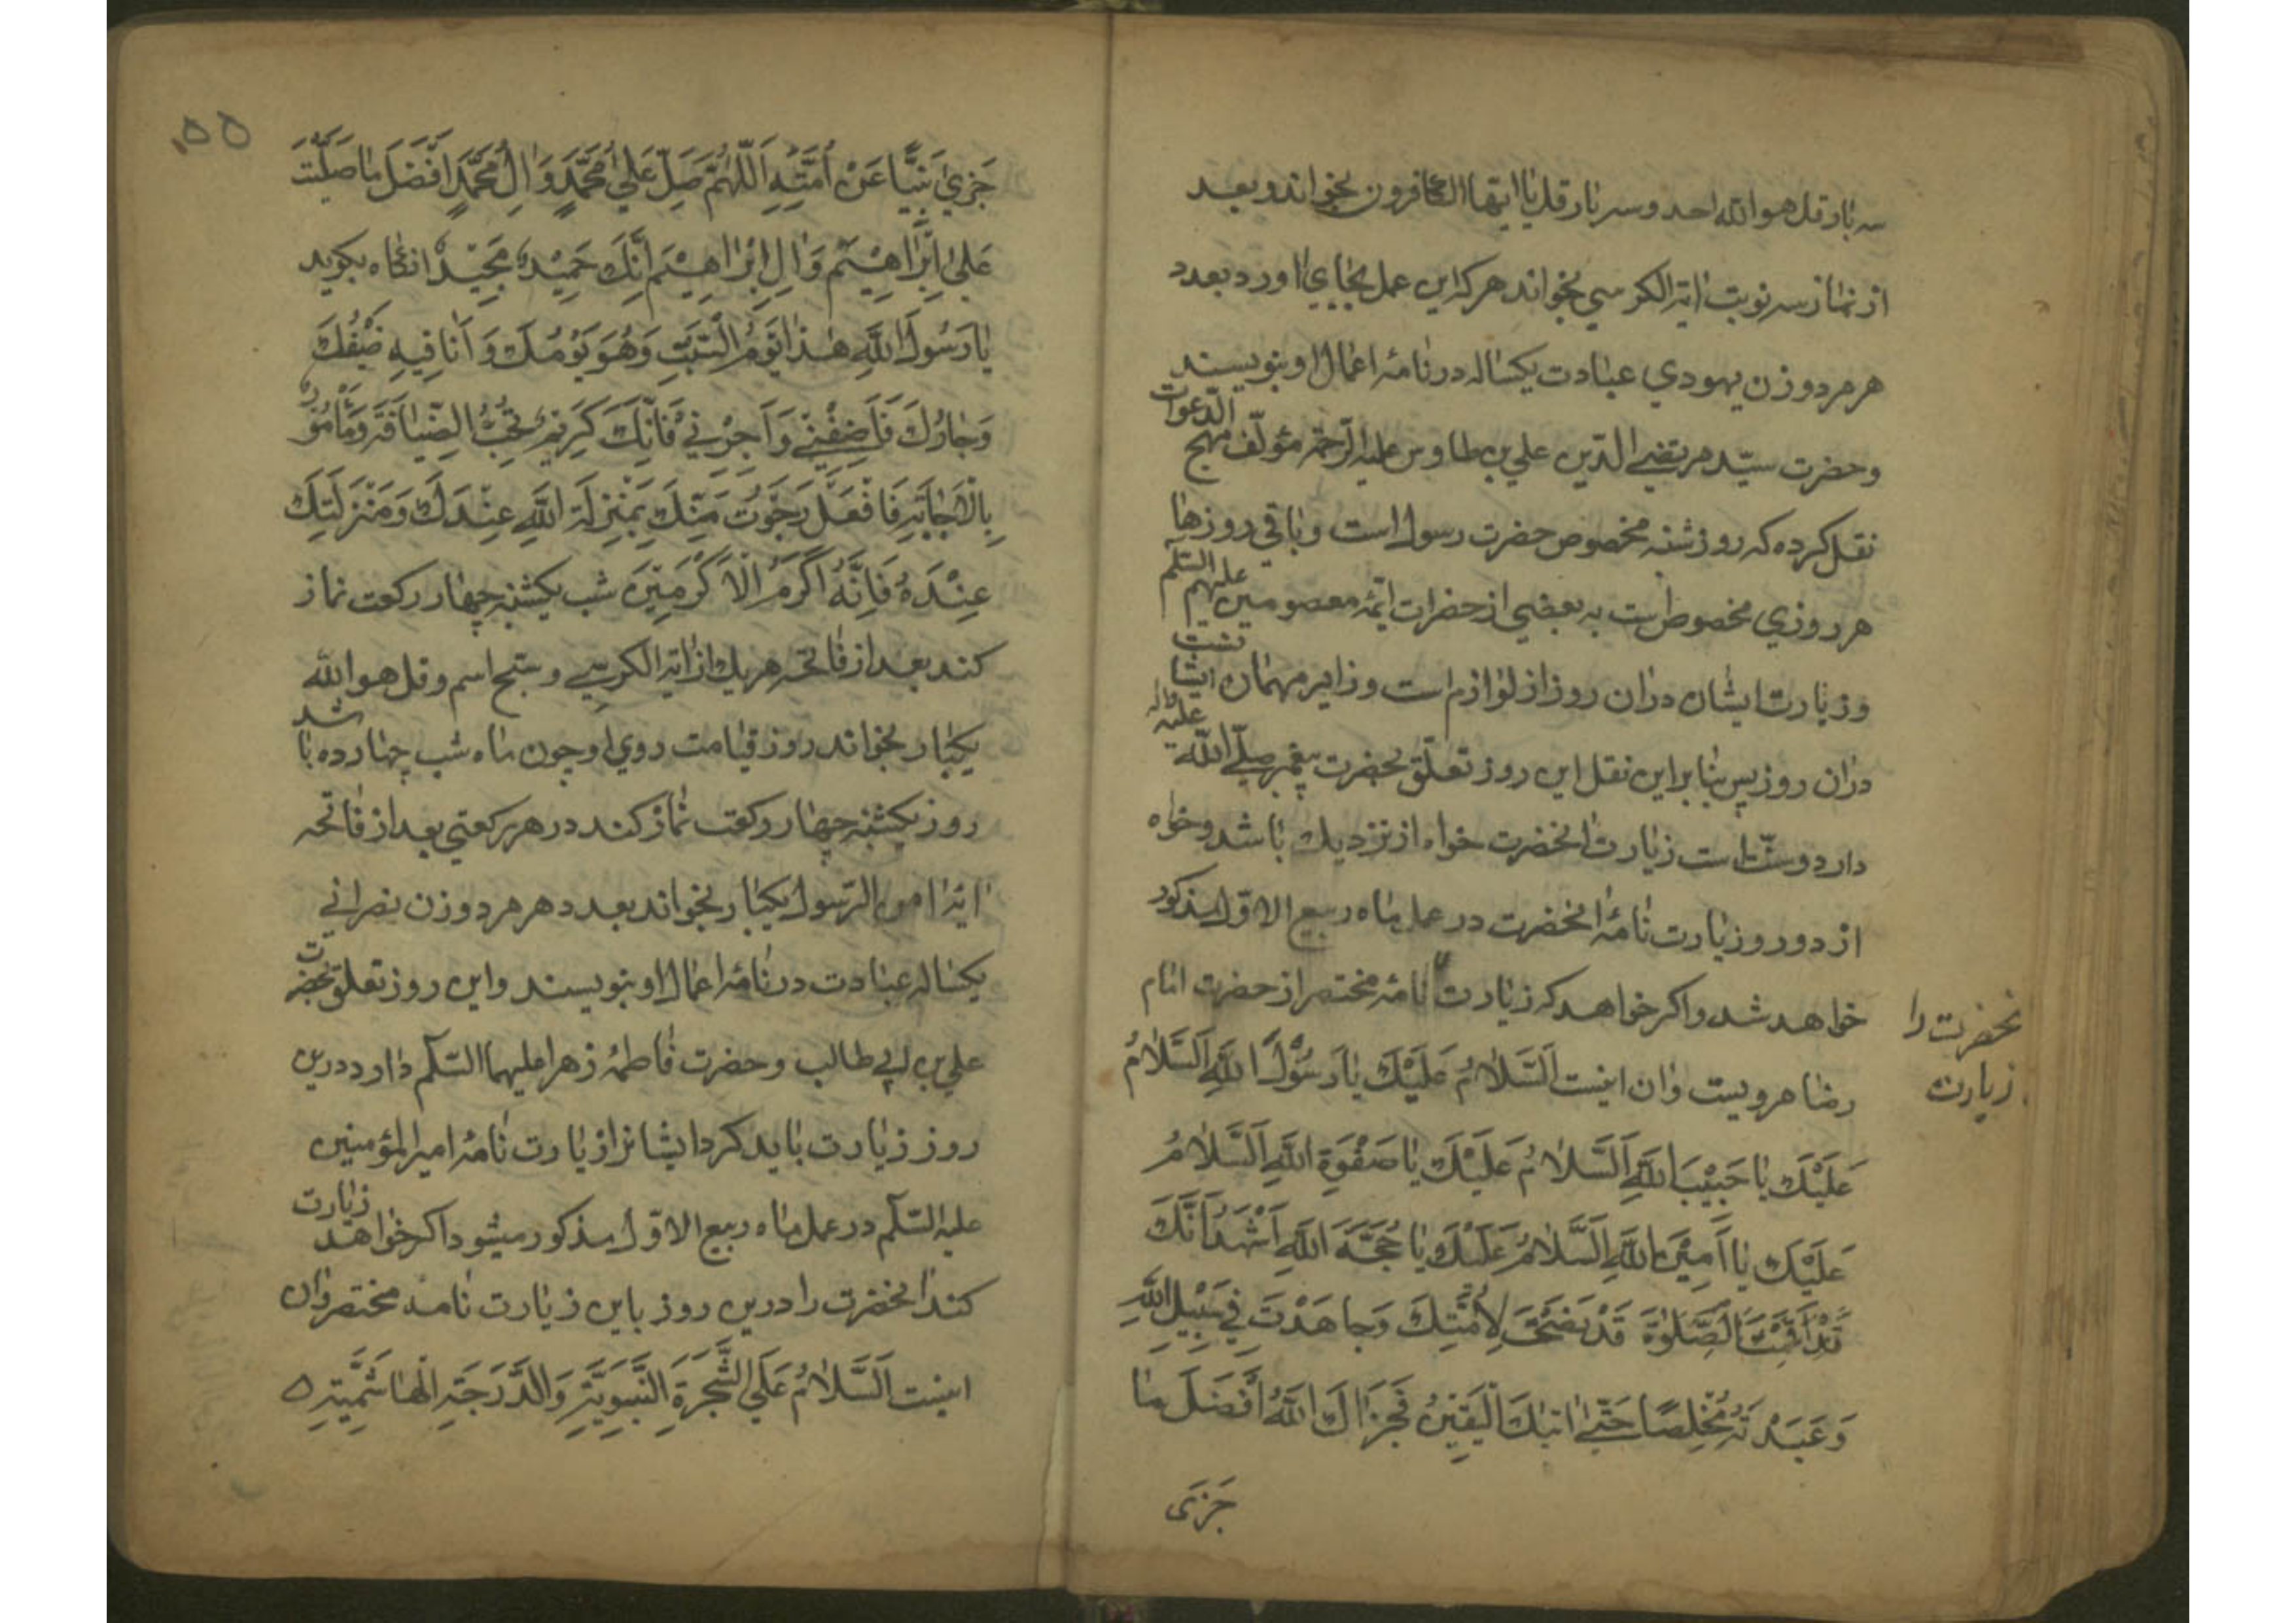 سه بار قل هو الله احد و سه بار قل یا ایها الکافرون بخواند و بعد
از نماز سه نوبت ایة الکرسی بخواند هر که این عمل بجای اورد بعدد
هر مرد و زن یهودی عبادت یکساله در نامهٔ اعمال او بنویسند
و حضرت سیّد مرتضی الدین علی بن طاوس علیه الرّحمة مؤلّف مهج الدّعوات
نقل کرده که روز شنبه مخصوص حضرت رسول است و باقی روزها
هر روزی مخصوص است به بعضی از حضرات ائمّه معصومین علیهم السّلم
و زیارت ایشان دران روز از لوازم است و زایر مهمان ایشانست
دران روز پس بنا براین نقل این روز تعلّق بحضرت پیغمبر صلّی الله علیه واله
دارد و سنّت است زیارت انحضرت خواه از نزدیک باشد و خواه
از دور و زیارت نامهٔ انحضرت در عمل ماه ربیع الاوّل مذکور
خواهد شد و اکر خواهد که زیارت نامهٔ مختصر از حضرت امام
نحضرت را
زیارت
رضا مرویست وان اینست اَلسَّلامُ عَلَیْكَ یا رَسُولَ اللهِ اَلسَّلامُ
عَلَیْكَ یا حَبیْبَ اللهِ اَلسَّلامُ عَلَیْكَ یا صَفْوَةِ اللهِ اَلسَّلامُ
عَلَیْكَ یا اَمیْنَ اللهِ اَلسَّلامُ عَلَیْكَ یا حُجَّةَ اللهِ اَشْهَدُ اَنَّكَ
قَدْ اَقَمْتَ الصَّلوٰةَ قَدْ نَصَحْتَ لِاُمَّتِكَ وَجاهَدْتَ فی سَبیْلِ اللهِ
وَعَبَدْتَهُ مُخْلِصًا حَتّیٰ اتیٰكَ الْیَقینُ فَجَزاكَ اللهُ اَفْضَلَ ما
جَزَی
۵۵
جَزیٰ نَبِیًّا عَنْ اُمَّتِهِ اَللّٰهُمَّ صَلِّ عَلیٰ مُحَمَّدٍ وَالِ مُحَمَّدٍ اَفْضَلَ ما صَلَّیْتَ
عَلیٰ اِبْراهِیْمَ وَالِ اِبْراهِیْمَ اِنَّكَ حَمیْدٌ مَجیْدٌ انکاه بکوید
یا رَسُولَ اللهِ هٰذا یَوْمُ السَّبْتِ وَهُوَ یَوْمُكَ وَ اَنَا فیهِ ضَیْفُكَ
وَجارُكَ فَاَضِفْنی وَاَجِرْنی فَاِنَّكَ کَریْمٌ تُحِبُّ الضِّیافَةَ وَمَأْمُورٌ
بِالْاِجابَةِ فَافْعَلْ رَجَوْتُ مِنْكَ بِمَنْزِلَةِ اللهِ عِنْدَكَ وَمَنْزِلَتِكَ
عِنْدَهُ فَاِنَّهُ اَکْرَمُ الْاَکْرَمیْنَ شب یکشنبه چهار رکعت نماز
کند بعد از فاتحه هر یک از ایة الکرسی و سبّح اسم و قل هو الله
یکبار بخواند روز قیامت روی او چون ماه شب چهارده باشد
روز یکشنبه چهار رکعت نماز کند در هر رکعتی بعد از فاتحه
ایهٔ امن الرّسول یکبار بخواند بعدد هر مرد و زن نصرانی
یکساله عبادت در نامهٔ اعمال او بنویسند و این روز تعلّق بحضرت
علی بن ابی طالب و حضرت فاطمهٔ زهرا علیهما السّلم دارد درین
روز زیارت باید کرد ایشانرا زیارت نامهٔ امیر المؤمنین
علیه السّلم در عمل ماه ربیع الاوّل مذکور میشود اکر خواهد زیارت
کند انحضرت را درین روز باین زیارت نامه مختصر وان
اینست اَلسَّلامُ عَلَی الشَّجَرَةِ النَّبَوِیَّةِ وَالدَّرَجَةِ الْهاشِمِیَّةِ